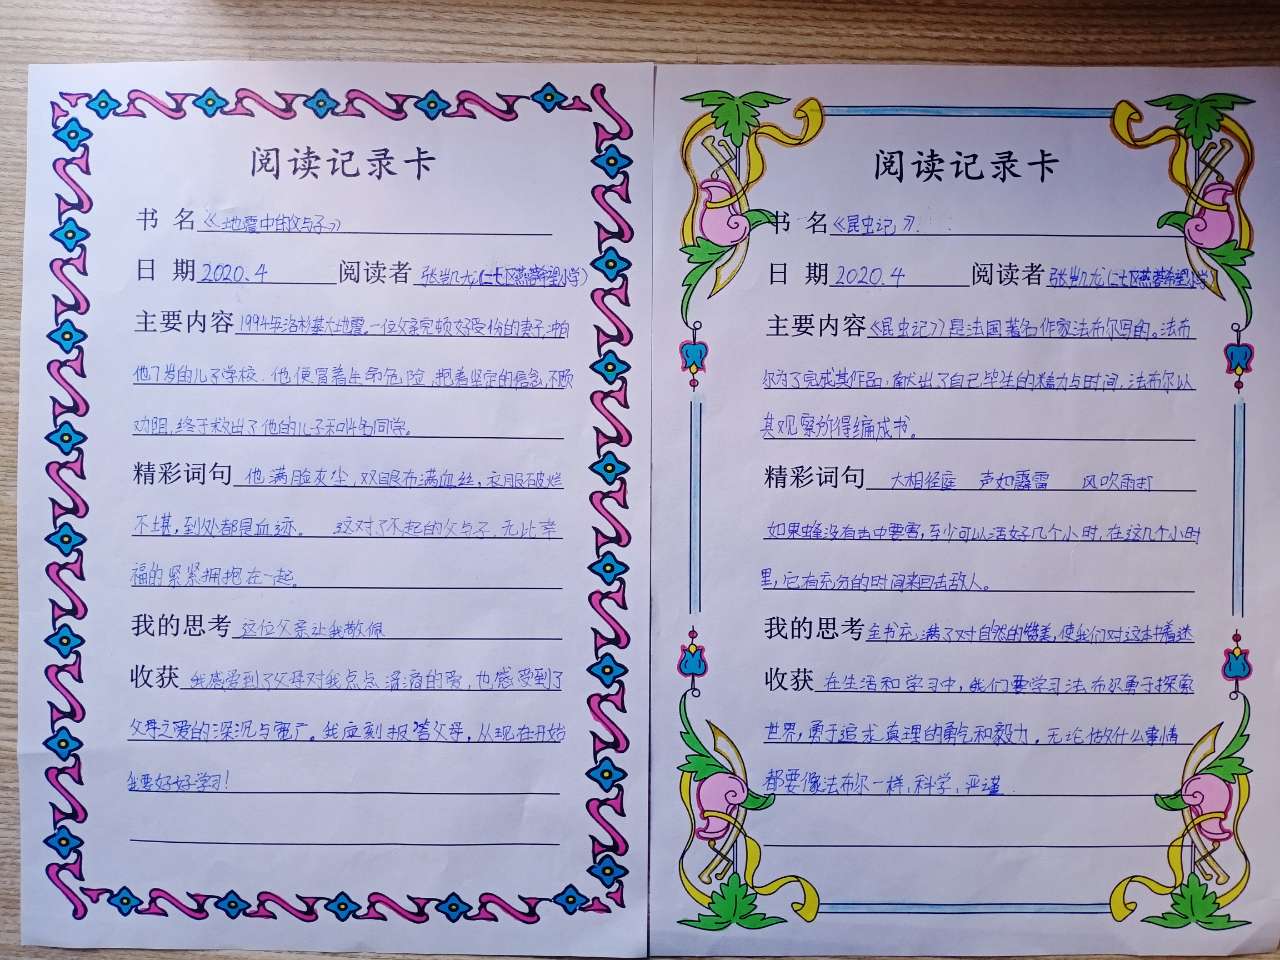 阅读记录卡
书 名《地震中的父与子》
日 期 2020.4 阅读者 张凯龙(仁七区燕蓉希望小学)
主要内容 1994年洛杉基大地震.一位父亲完顿好受伤的妻子,冲向
他7岁的儿子学校.他便冒着生命危险,抱着坚定的信念,不顾
劝阻,终于救出了他的儿子和14名同学。
精彩词句 他满脸灰尘,双眼布满血丝,衣服破烂
不堪,到处都是血迹。 这对了不起的父与子,无比幸
福的紧紧拥抱在一起。
我的思考 这位父亲让我敬佩
收获 我感受到了父母对我点点滴滴的爱,也感受到了
父母之爱的深沉与宽广。我应刻报答父母,从现在开始
我要好好学习!
阅读记录卡
书 名《昆虫记》.
日 期 2020.4 阅读者 张凯龙(仁七区燕蓉希望小学)
主要内容《昆虫记》是法国著名作家法布尔写的。法布
尔为了完成其作品,献出了自己毕生的精力与时间,法布尔以
其观察所得编成书。
精彩词句 大相径庭 声如霹雷 风吹雨打
如果蜂没有击中要害,至少可以活好几个小时,在这几个小时
里,它有充分的时间来回击敌人。
我的思考 全书充满了对自然的赞美,使我们对这本书着迷
收获 在生活和学习中,我们要学习法布尔勇于探索
世界,勇于追求真理的勇气和毅力,无论做什么事情
都要像法布尔一样,科学,严谨.